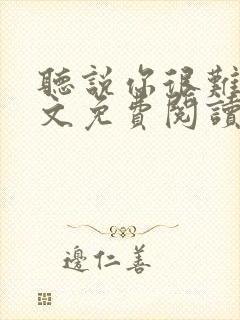 聽說你很難
文免費閱讀
邊仁善